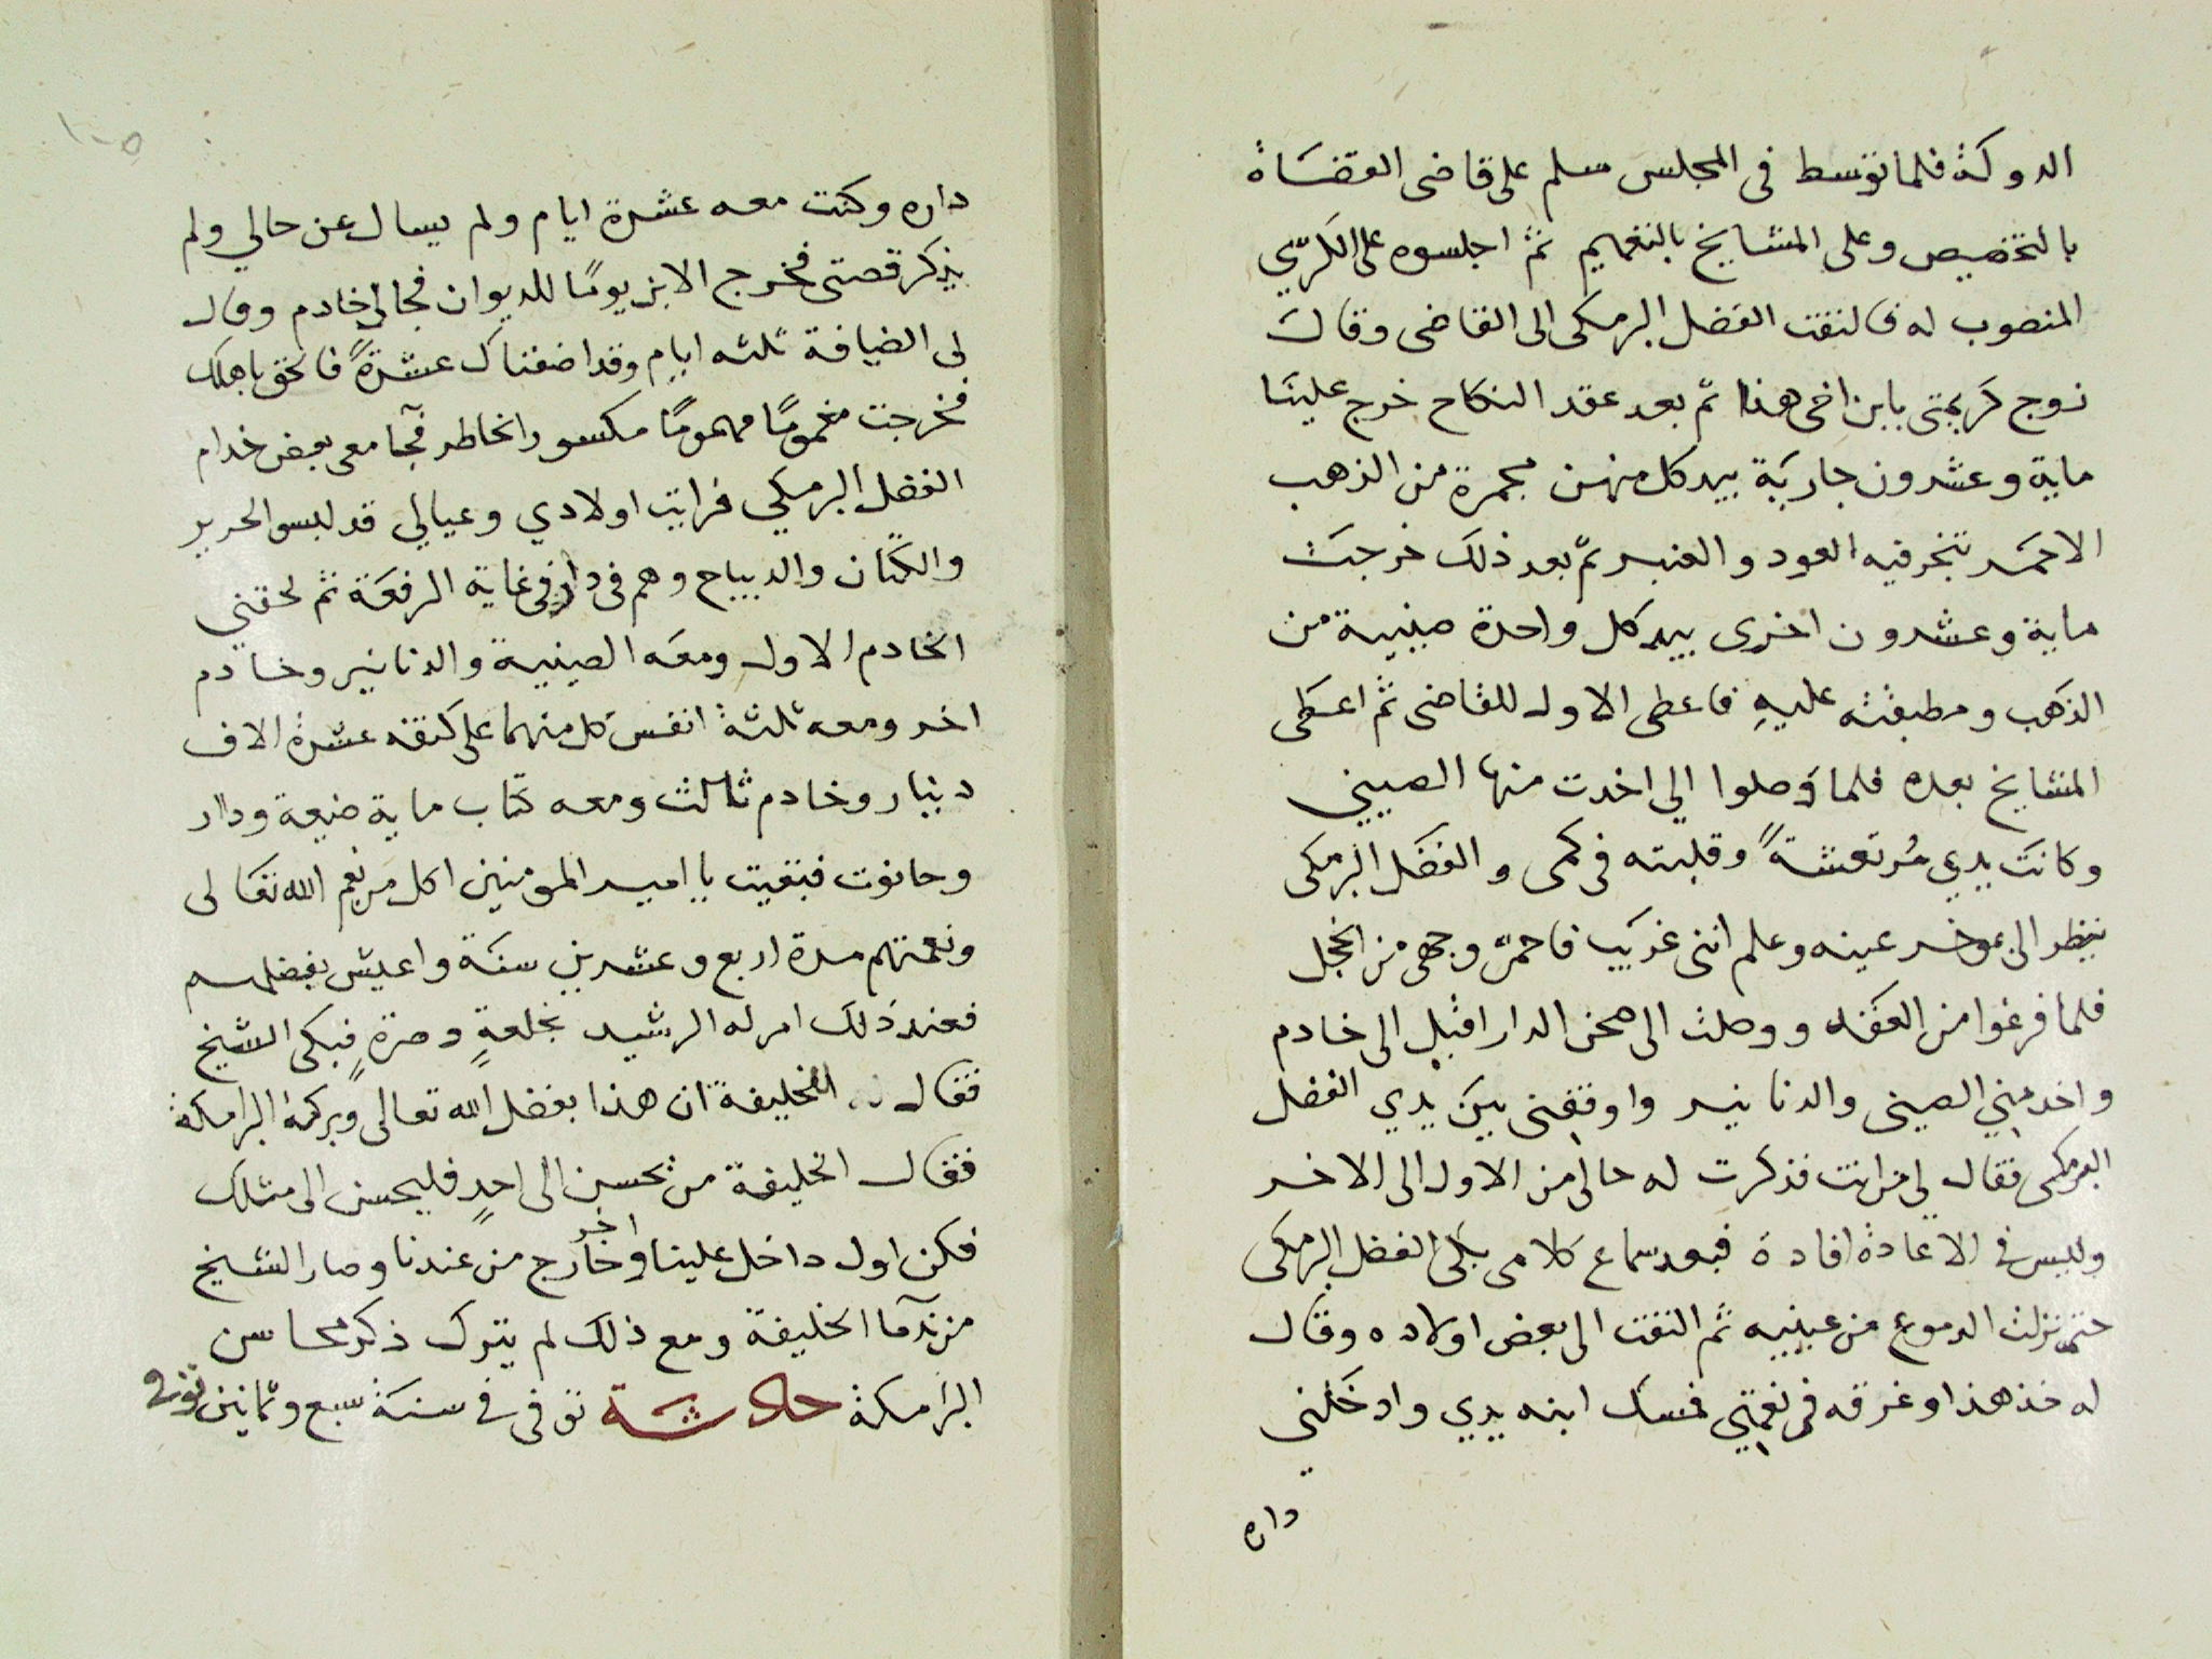 الدوكة فلما توسط في المجلس سلم على قاضى القضاة
بالتخصيص وعلى المشايخ بالتعميم ثم اجلسوه على الكرسي
المنصوب له فالتفت الفضل البرمكى الى القاضى وقال
زوج كريمتى بابن اخى هذا ثم بعد عقد النكاح خرج علينا
ماية وعشرون جارية بيد كل منهن مجمرة من الذهب
الاحمر تبخر فيه العود والعنبر ثم بعد ذلك خرجت
ماية وعشرون اخرى بيد كل واحدة صينية من
الذهب ومطبقته عليه فاعطى الاول للقاضى ثم اعطى
المشايخ بعده فلما وصلوا الي اخدت منها الصيني
وكانت يدي مرتعشة وقلبته في كمى والفضل البرمكى
ينظر الى بموخر عينه وعلم اننى غريب فاحمر وجهى من الخجل
فلما فرغوا من العقد ووصلت الى صحن الدار اقبل الى خادم
واخد مني الصينى والدنانير واوقفنى بين يدي الفضل
البرمكى فقال لي من انت فذكرت له حالى من الاول الى الاخر
وليس في الاعادة افادة فبعد سماع كلامى بكى الفضل البرمكى
حتى نزلت الدموع من عينيه ثم التفت الى بعض اولاده وقال
له خذ هذا وغرقه في نعمتي فمسك ابنه يدي وادخلني
داره
١٠٥
داره وكنت معه عشرة ايام ولم يسال عن حالي ولم
يذكر قصتى فخرج الابن يومًا للديوان فجا لي خادم وقال
لى الضيافة ثلثه ايام وقد اضفناك عشرةً فالحق باهلك
فخرجت مغمومًا مهمومًا مكسور الخاطر فجآ معى بعض خدام
الفضل البرمكي فرايت اولادي وعيالي قد لبسو الحرير
والكتان والديباج وهم في دار في غاية الرفعة ثم لحقني
الخادم الاول ومعه الصينية والدنانير وخادم
اخر ومعه ثلثة انفس كل منهما على كتفه عشرة الاف
دينار وخادم ثالث ومعه كتاب ماية ضيعة ودار
وحانوت فبقيت يا امير المومنين اكل من نعم الله تعالى
ونعمتهم مدة اربع وعشرين سنة واعيش بفضلهم
فعند ذلك امر له الرشيد بخلعةٍ وصرةٍ فبكى الشيخ
فقال الخليفة ان هذا بفضل الله تعالى وبركة البرامكة
فقال الخليفة من يحسن الى احدٍ فليحسن الى مثلك
فكن اول داخل علينا واخر خارج من عندنا وصار الشيخ
من ندما الخليفة ومع ذلك لم يترك ذكر محاسن
البرامكة حادثة توفى في سنة سبع وثمانين